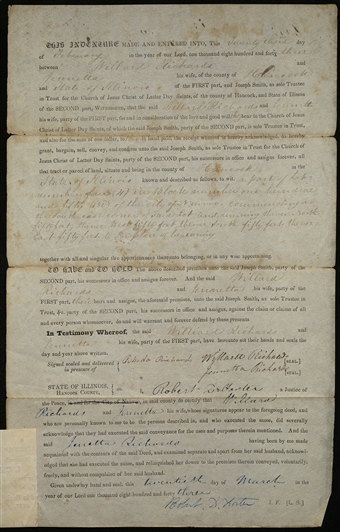 THIS INDENTURE MADE AND ENTERED INTO, This Twenty third day
of February in the year of our Lord, one thousand eight hundred and forty three
between Willard Richards and
Jennetta his wife, of the county of Hancock
and State of Illinois of the FIRST part, and Joseph Smith, as sole Trustee
in Trust for the Church of Jesus Christ of Latter Day Saints, of the county of Hancock, and State of Illinois
of the SECOND part, WITNESSETH, that the said Willard Richards and Jennetta
his wife, party of the FIRST part, for and in consideration of the love and good will they bear to the Church of
Jesus Christ of Latter Day Saints, of which the said Joseph Smith, party of the SECOND part, is sole Trustee in Trust,
and also for the sum of one dollar, to them in hand paid, the receipt whereof is hereby acknowledged, do hereby
grant, bargain, sell, convey, and assign unto the said Joseph Smith, as sole Trustee in Trust for the Church of
Jesus Christ of Latter Day Saints, party of the SECOND part, his successors in office and assigns forever, all
that tract or parcel of land, situate and being in the county of Hancock in the
State of Illinois known and described as follows, to wit,
together with all and singular the appurtenances thereunto belonging, or in any wise appertaining.
TO HAVE and TO HOLD the above described premises unto the said Joseph Smith, party of the
SECOND part, his successors in office and assigns forever. And the said Willard
Richards and Jennetta his wife, party of the
FIRST part, their heirs and assigns, the aforesaid premises, unto the said Joseph Smith, as sole Trustee in
Trust, &c. party of the SECOND part, his successors in office and assigns, against the claim or claims of all
and every person whomsoever, do and will warrant and forever defend by these presents
In Testimony Whereof, the said Willard Richards and
Jennetta his wife, party of the FIRST part, have hereunto set their hands and seals the
day and year above written.
Signed sealed and delivered Rhoda Richards Willard Richards [SEAL]
in presence of Jennetta Richards [SEAL]
STATE OF ILLINOIS,
HANCOCK COUNTY, I, Robert D. Foster a Justice of
the Peace, do certify that Willard
Richards and Jennetta his wife, whose signatures appear to the foregoing deed, and
who are personally known to me to be the persons described in, and who executed the same, did severally
acknowledge that they had executed the said conveyance for the uses and purposes therein mentioned. And the
said Jennetta Richards having been by me made
acquainted with the contents of the said Deed, and examined separate and apart from her said husband, acknowl-
edged that she had executed the same, and relinquished her dower to the premises therein conveyed, voluntarily,
freely, and without compulsion of her said husband.
Given under my hand and seal, this twentieth day of March in the
year of our Lord one thousand eight hundred and forty three
Robert D. Foster J. P. [L. S.]